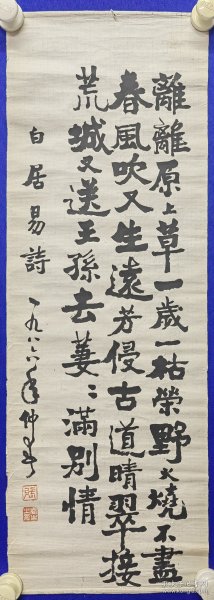 離離原上草一歲一枯榮野火燒不盡
春風吹又生遠芳侵古道晴翠接
荒城又送王孫去萋〻滿別情
白居易詩 一九八六年仲